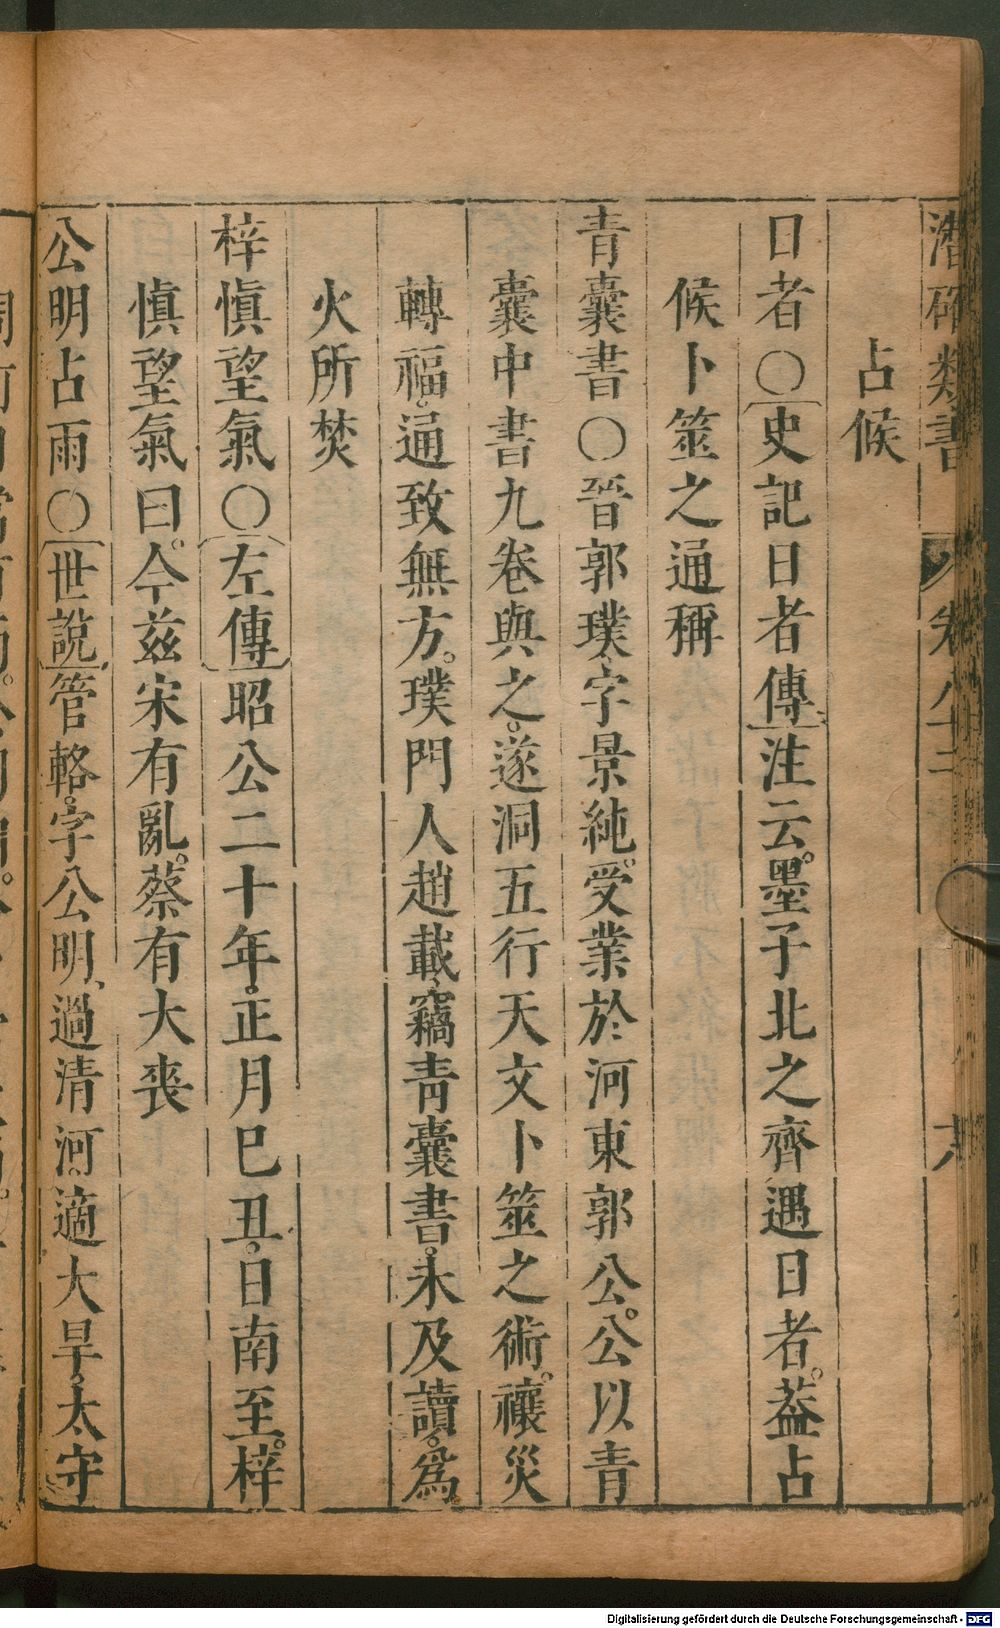 潛確類書 卷八十二
占候
日者○史記日者傳注云墨子北之齊遇日者。葢占
候卜筮之通稱
青囊書○晉郭璞、字景純。受業於河東郭公。公以青
囊中書九卷與之。遂洞五行天文卜筮之術。禳災
轉福。通致無方。璞門人趙載、竊靑囊書。未及讀。爲
火所焚
梓愼望氣○左傳昭公二十年。正月巳丑。日南至。梓
愼望氣曰。今茲宋有亂。蔡有大喪
公明占雨○世說管輅。字公明、過清河適大旱。太守
Digitalisierung gefördert durch die Deutsche Forschungsgemeinschaft - DFG